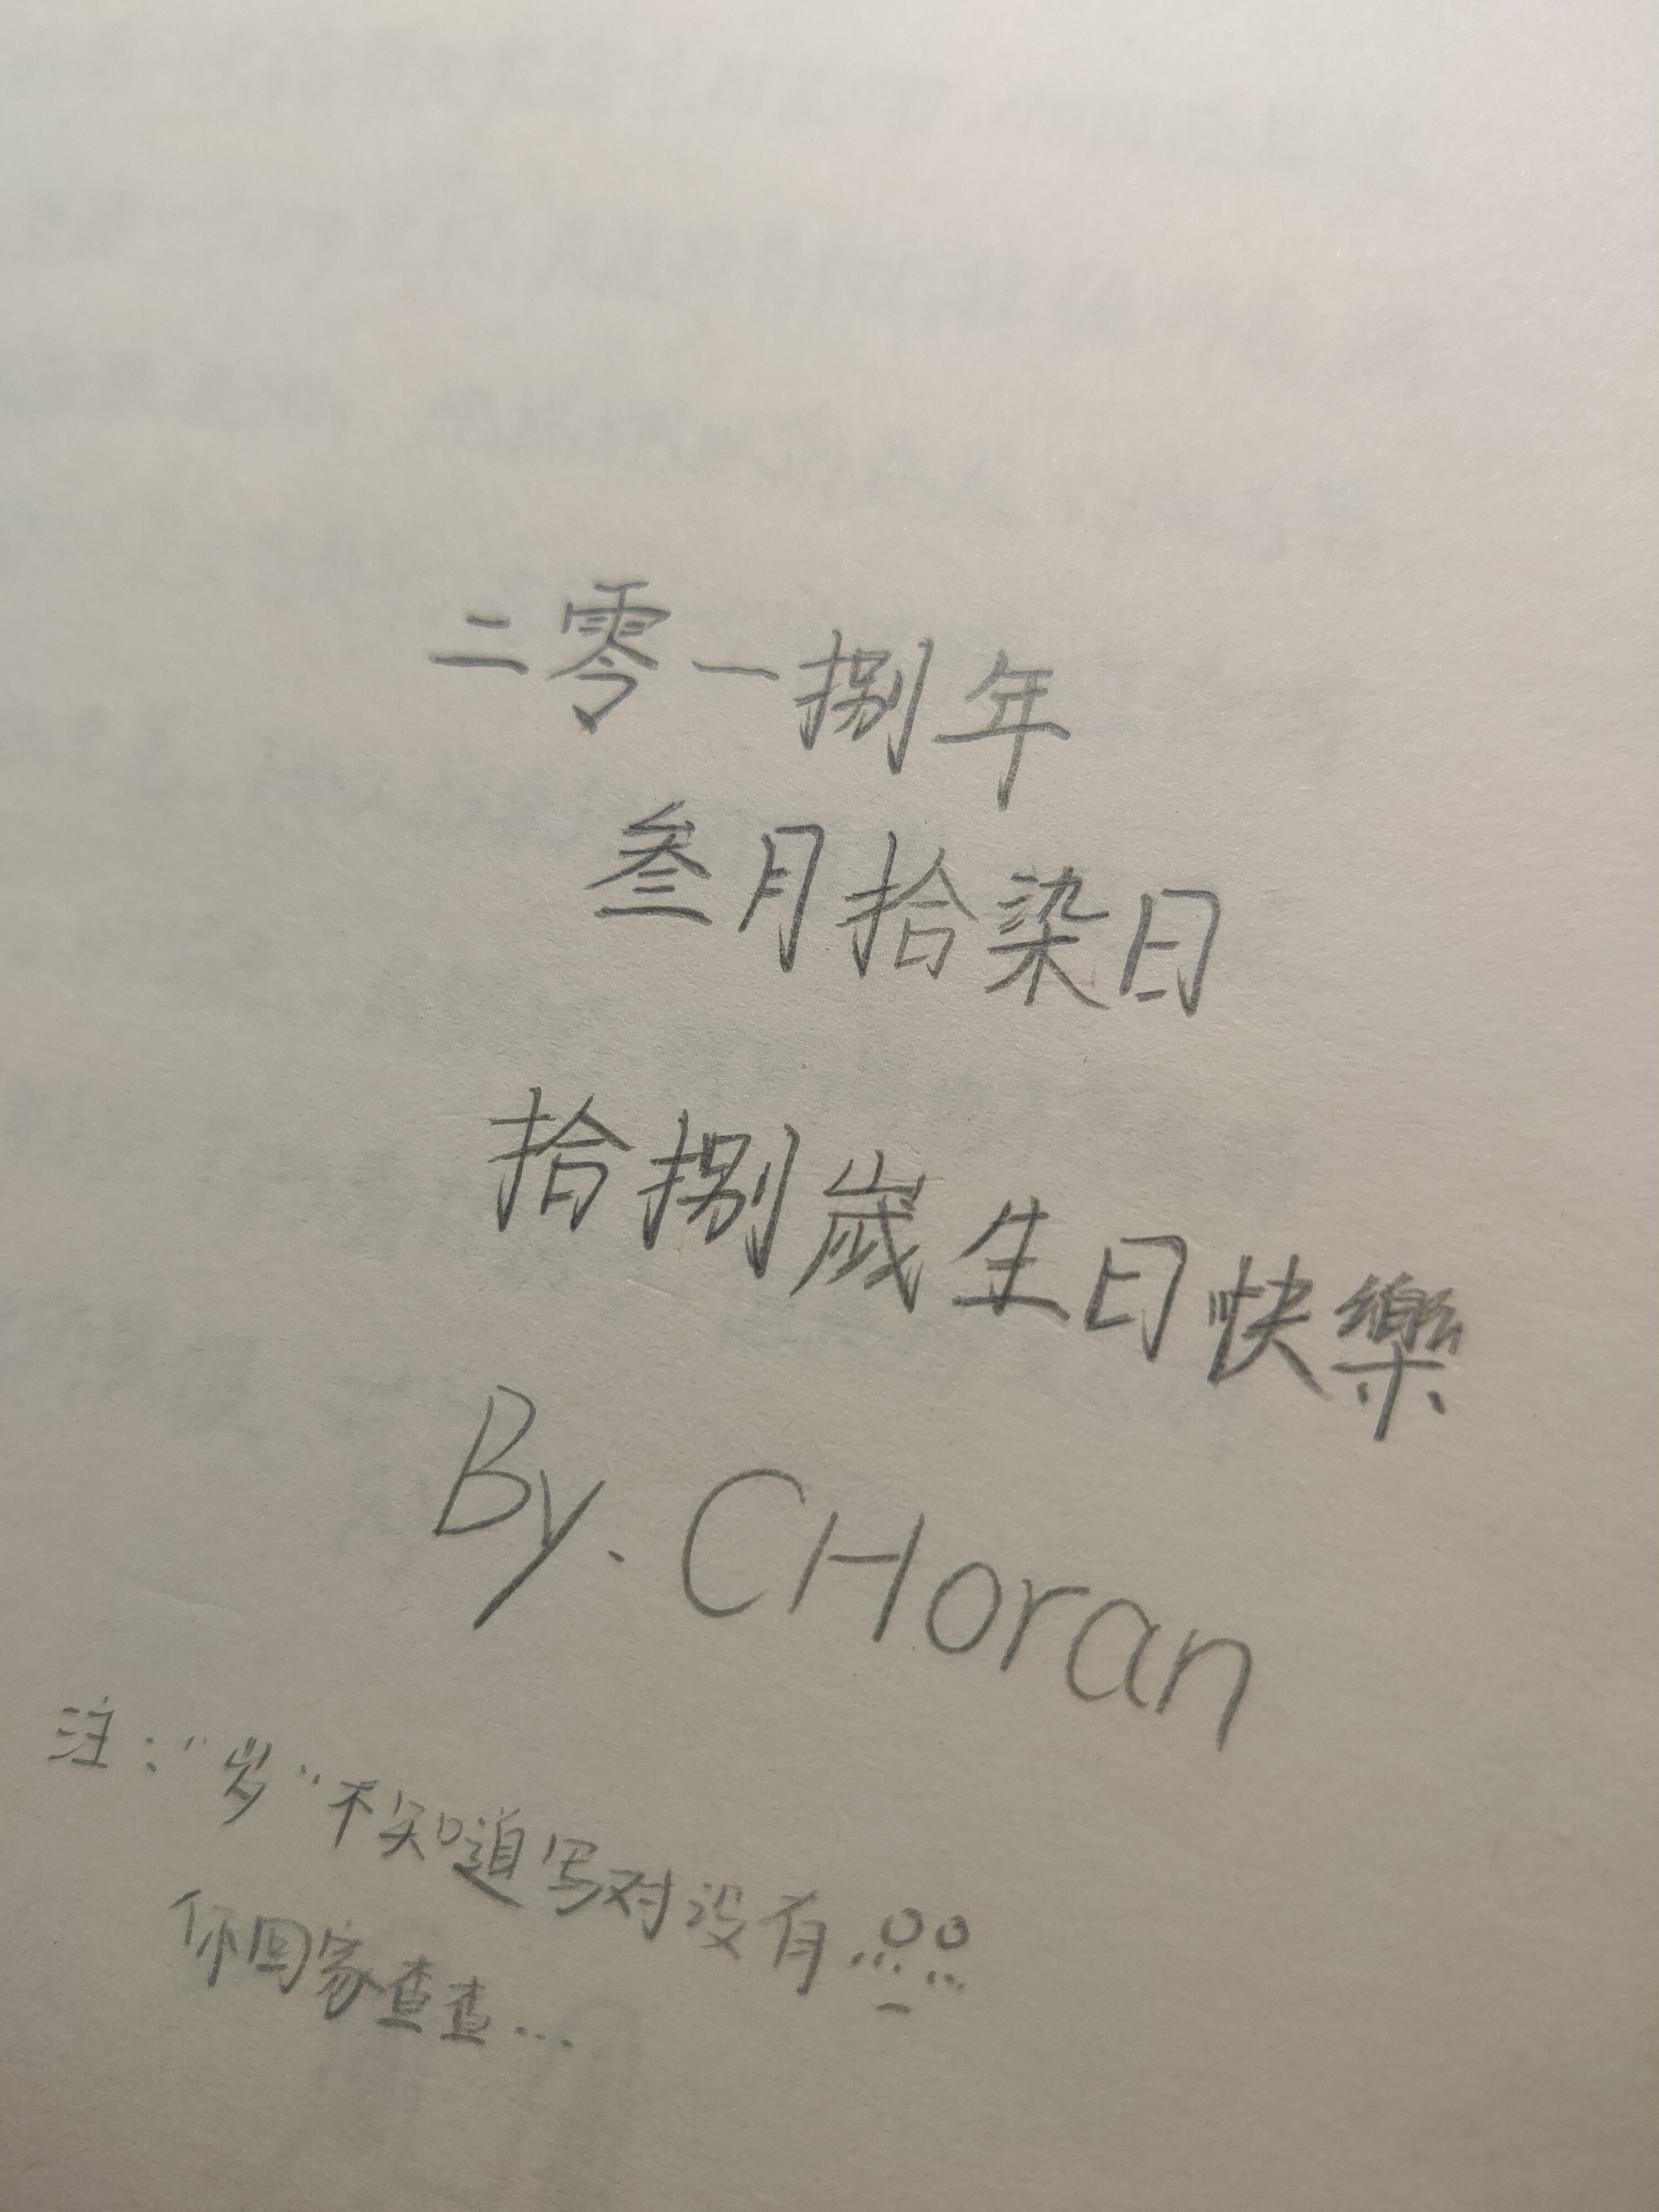 二零一捌年
叁月拾染日
拾捌歲生日快樂
By. CHoran
注："岁"不知道写对没有...
你回家查查...